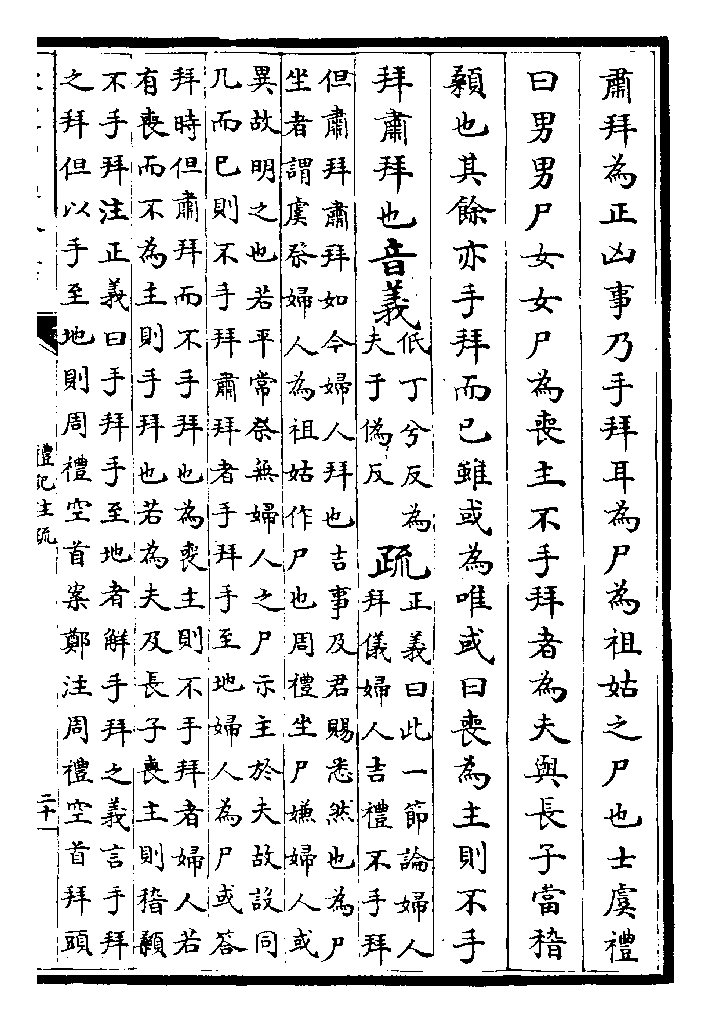 肅拜為正凶事乃手拜耳為尸為祖姑之尸也士虞禮
曰男男尸女女尸為喪主不手拜者為夫與長子當稽
顙也其餘亦手拜而已雖或為唯或曰喪為主則不手
拜肅拜也音義低丁兮反為
夫于偽反
疏正義曰此一節論婦人
拜儀婦人吉禮不手拜
但肅拜肅拜如今婦人拜也吉事及君賜悉然也為尸
坐者謂虞祭婦人為祖姑作尸也周禮坐尸嫌婦人或
異故明之也若平常祭無婦人之尸示主於夫故設同
几而已則不手拜肅拜者手拜手至地婦人為尸或答
拜時但肅拜而不手拜也為喪主則不手拜者婦人若
有喪而不為主則手拜也若為夫及長子喪主則稽顙
不手拜注正義曰手拜手至地者解手拜之義言手拜
之拜但以手至地則周禮空首案鄭注周禮空首拜頭
禮記注疏
二十